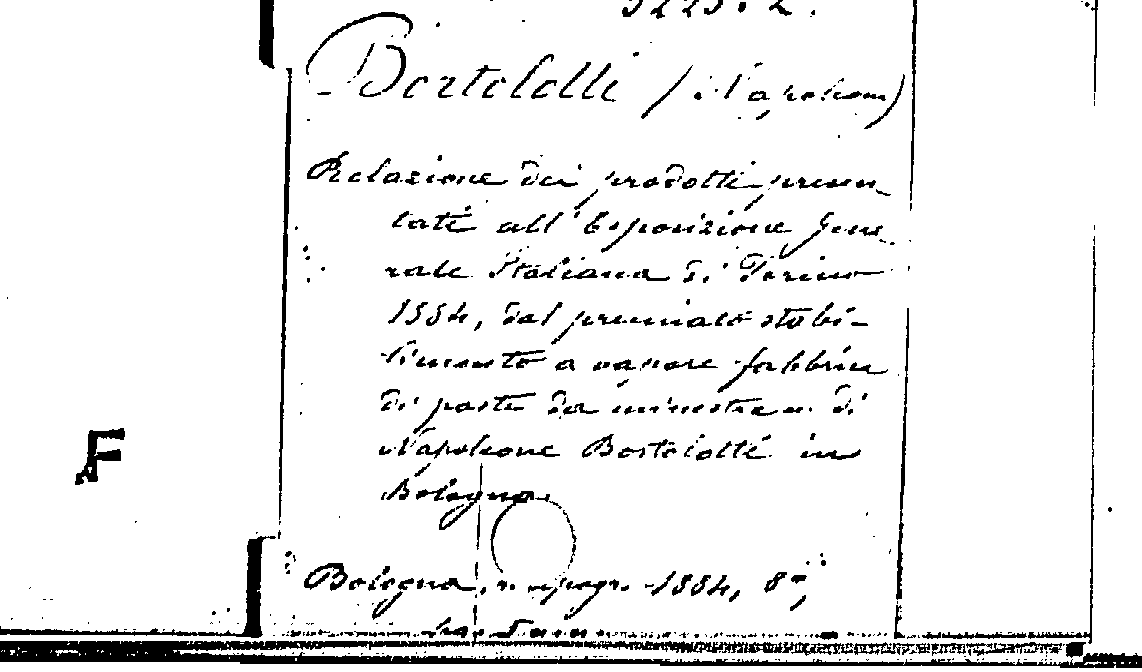 Bortolotti (Napoleone)
Relazione dei prodotti presen-
tati all'Esposizione Gene-
rale Italiana di Torino
1884, dal premiato stabi-
limento a vapore fabbrica
di paste da minestra di
Napoleone Bortolotti in
Bologna.
F
Bologna, tipogr. 1884, 8º,